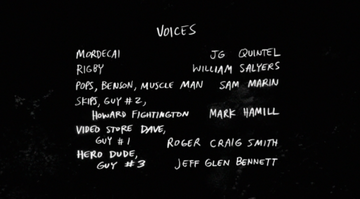 VOICES
MORDECAI JG QUINTEL
RIGBY WILLIAM SALYERS
POPS, BENSON, MUSCLE MAN SAM MARIN
SKIPS, GUY #2,
HOWARD FIGHTINGTON MARK HAMILL
VIDEO STORE DAVE,
GUY #1 ROGER CRAIG SMITH
HERO DUDE,
GUY #3 JEFF GLEN BENNETT